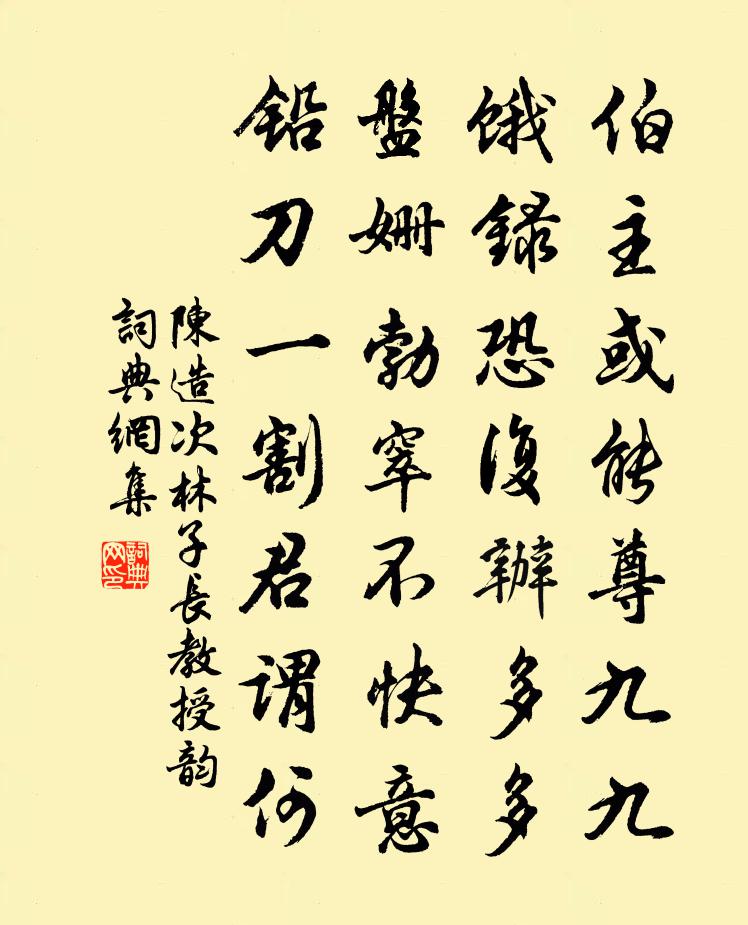 伯主或能尊九九
餓錄恐復辦多多
盤姍勃窣不快意
鉛刀一割君謂何
陳造次林子長教授韵
詞典網集
詞典网印